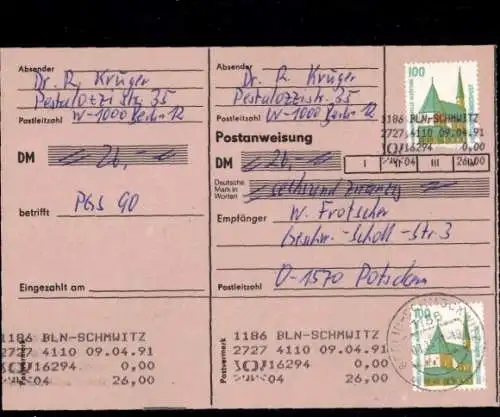 Absender
Dr. R. Krüger
Pestalozzi Str. 35
W-1000 Berlin 12
Postleitzahl
DM 26,-
betrifft PGS 90
Eingezahlt am
Postvermerk
1186 BLN-SCHMWITZ
2727 4110 09.04.91
16294 0,00
04 26,00
Absender
Dr. R. Krüger
Pestalozzistr. 35
W-1000 Berlin 12
Postleitzahl
Postanweisung
DM 26,-
I II III
Deutsche
Mark in
Worten
sechsundzwanzig
Empfänger
W. Frotscher
Geschw.-Scholl-Str. 3
O-1570 Potsdam
Postleitzahl
Postvermerk
1186 BLN-SCHMWITZ
2727 4110 09.04.91
16294 0,00
04 26,00
100
1186 BLN-SCHMWITZ
2727 4110 09.04.91
16294 0,00
04 26,00
100
1186